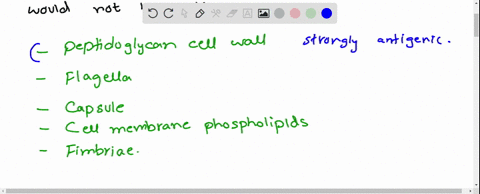 would not
(- peptidoglycan cell wall strongly antigenic.
- Flagella
- Capsule
- Cell membrane phospholipids
- Fimbriae.